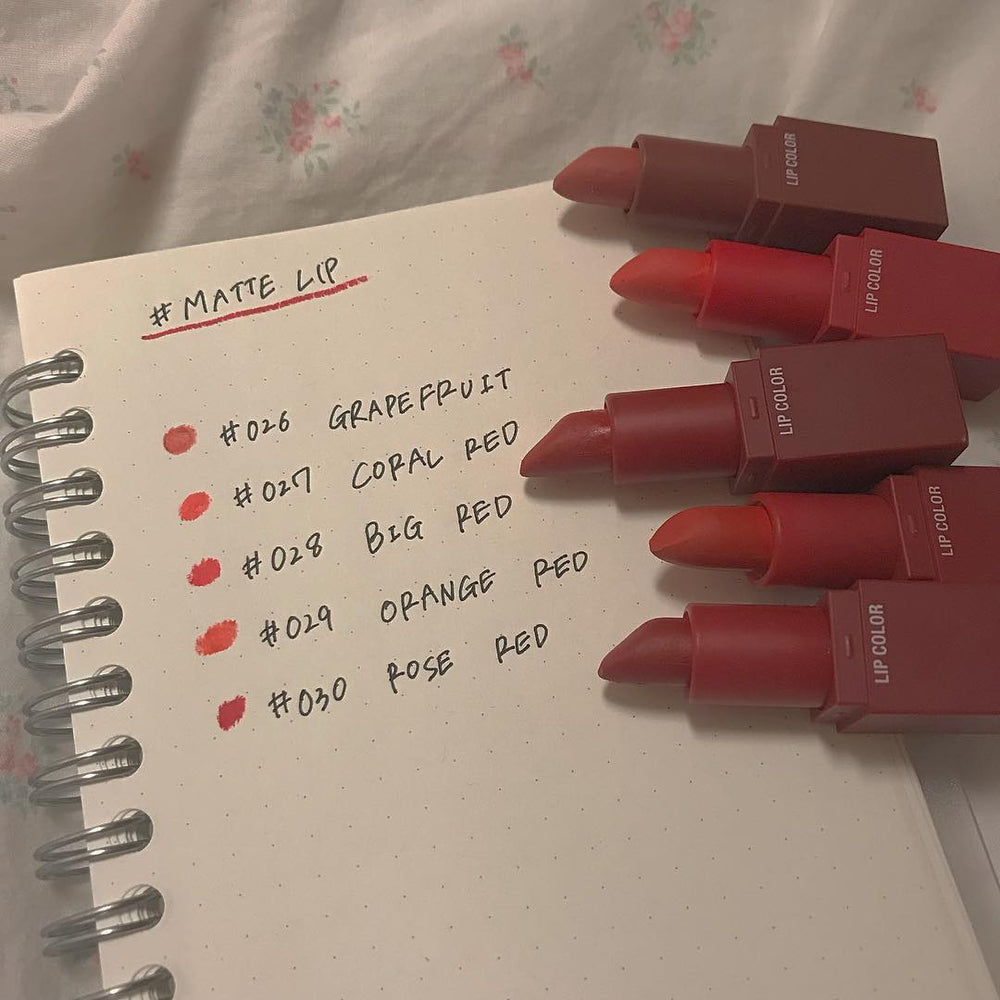 # MATTE LIP
#026 GRAPEFRUIT
#027 CORAL RED
#028 BIG RED
#029 ORANGE RED
#030 ROSE RED
LIP COLOR
LIP COLOR
LIP COLOR
LIP COLOR
LIP COLOR